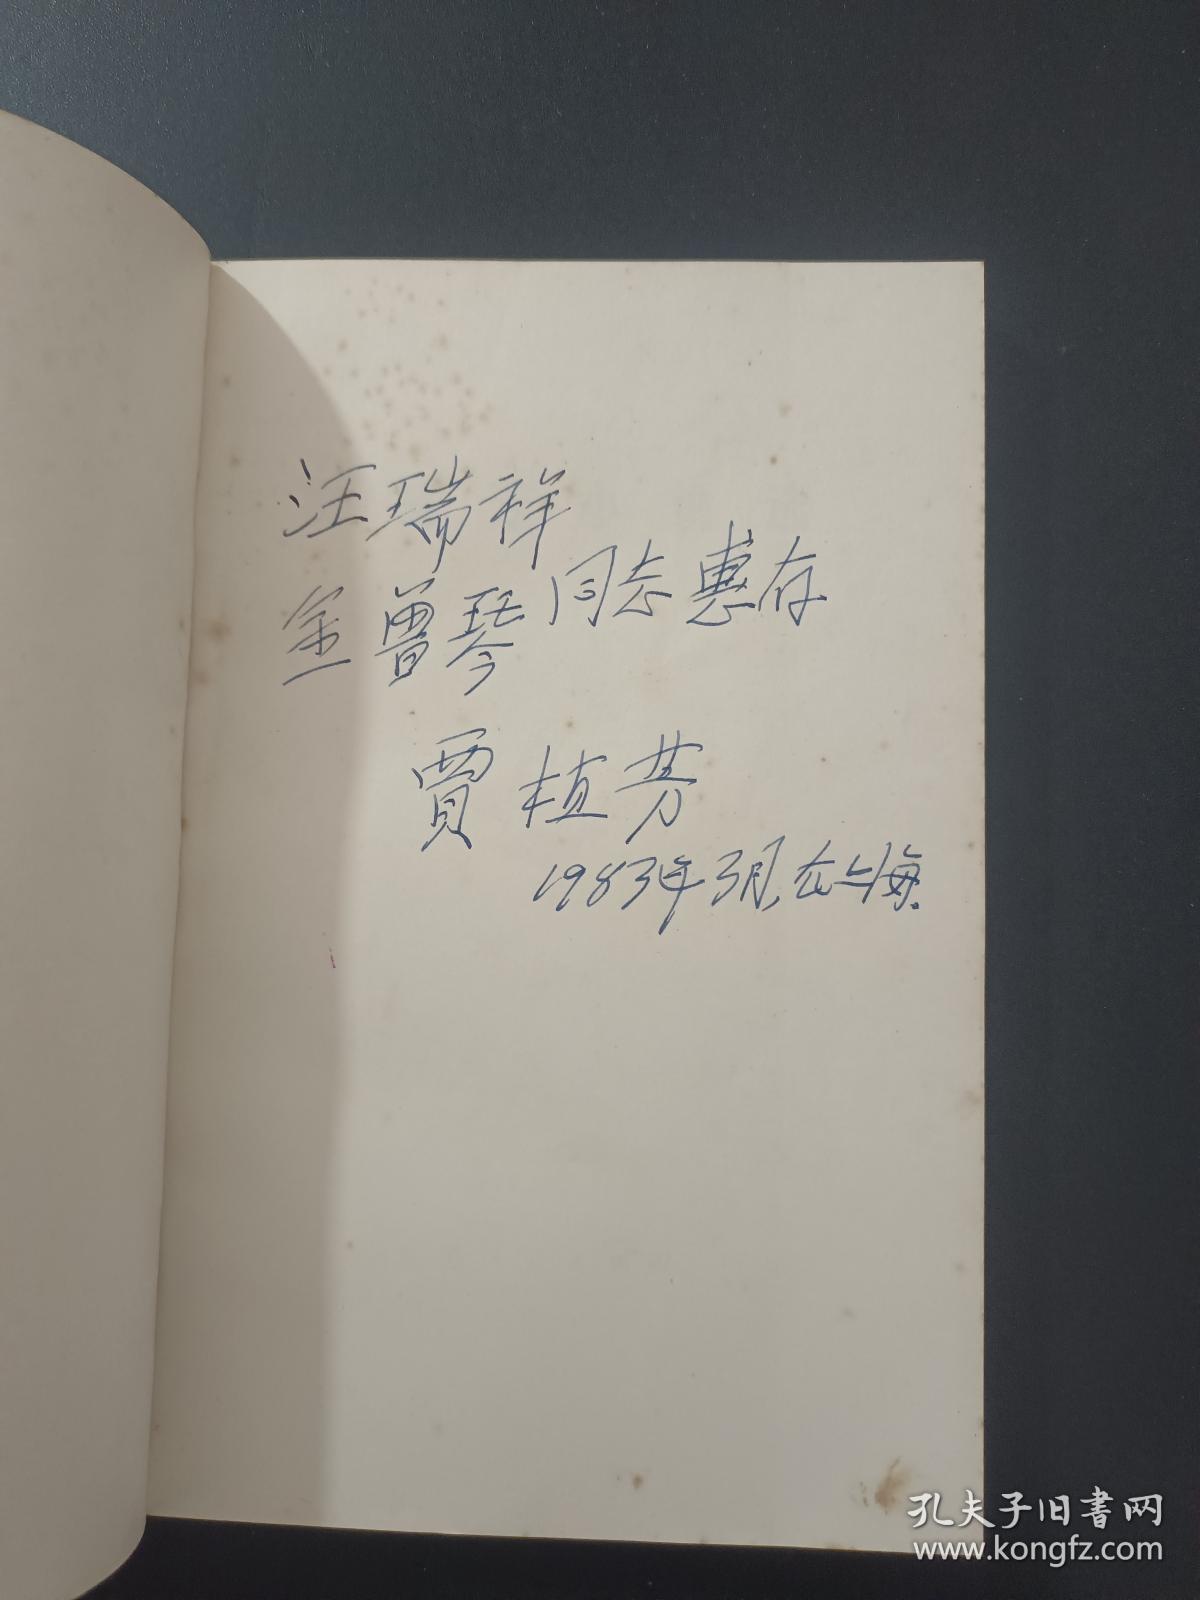 汪瑞祥
金曾琴 同志惠存
賈植芳
1983年3月,在上海.
孔夫子旧書网
www.kongfz.com